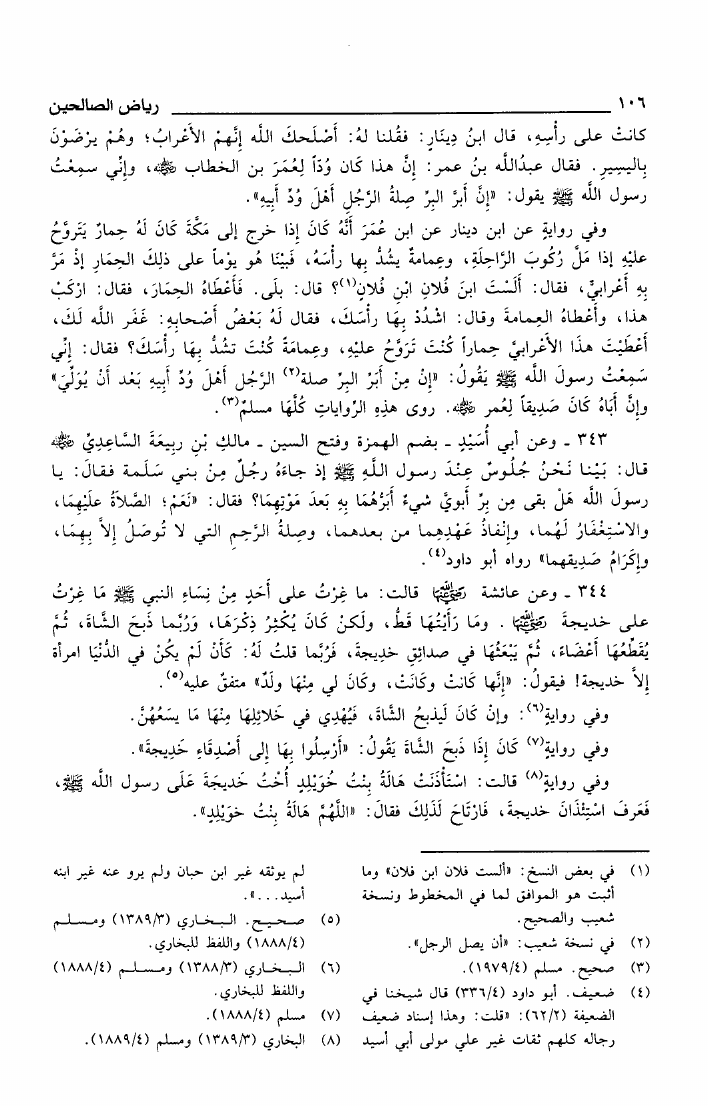 ١٠٦ رياض الصالحين
كانتْ على رأسِهِ، قال ابنُ دِينَارٍ: فقُلنا لهُ: أَصْلَحكَ الله إنَّهمْ الأعْرابُ؛ وهُم يرْضَوْنَ
بِاليسِيرِ. فقال عبدُالله بنُ عمر: إنَّ هذا كَان وُدّاً لِعُمَرَ بن الخطاب رضي الله عنه، وإنِّي سمِعْتُ
رسول الله ﷺ يقول: «إنَّ أبَرَّ البِرِّ صِلةُ الرَّجُلِ أَهْلَ وُدِّ أبِيهِ».
وفي روايةٍ عن ابن دينار عن ابن عُمَرَ أنَّهُ كَانَ إذا خرج إلى مَكَّةَ كَانَ لَهُ حِمارٌ يَتَروَّحُ
عليْهِ إذا مَلَّ رُكُوبَ الرَّاحِلَةِ، وعِمامةٌ يشُدُّ بِها رأسَهُ، فَبيْنَا هُو يوْماً على ذلِكَ الحِمَارِ إذْ مَرَّ
بِهِ أعْرابيٌّ، فقال: أَلَسْتَ ابنَ فُلانِ ابْنِ فُلانٍ(١)؟ قال: بلَى. فَأَعْطَاهُ الحِمَارَ، فقال: ارْكَبْ
هذا، وأعْطاهُ العِمامةَ وقالَ: اشْدُدْ بِهَا رأسَكَ، فقال لَهُ بَعْضُ أصْحابِهِ: غَفَر الله لَكَ،
أعْطَيْتَ هذَا الأعْرابيَّ حِماراً كُنْتَ تَرَوَّحُ عليْهِ، وعِمامَةً كُنْتَ تشُدُّ بِهَا رأسَكَ؟ فقال: إنِّي
سَمِعْتُ رسولَ الله ﷺ يَقُولُ: «إنْ مِنْ أبَرِّ البِرِّ صلة(٢) الرَّجُلِ أَهْلَ وُدِّ أبِيهِ بَعْد أن يُوَلِّيَ»
وإنَّ أبَاهُ كَانَ صَدِيقاً لِعُمر رضي الله عنه. روى هذِهِ الرِّواياتِ كُلَّهَا مسلمٌ(٣).
٣٤٣ ـ وعن أبي أُسَيْدٍ ـ بضم الهمزة وفتح السين ـ مالكِ بْنِ ربِيعَةَ السَّاعِدِيِّ رضي الله عنه
قال: بَيْنا نَحْنُ جُلُوسٌ عِنْدَ رسول اللهِ ﷺ إذ جاءَهُ رجُلٌ مِنْ بني سَلَمة فقالَ: يا
رسولَ الله هَلْ بقى مِن بِرِّ أبويَّ شيءٌ أبَرُّهُما بِهِ بَعدَ مَوْتِهِمَا؟ فقال: «نَعَمْ؛ الصَّلاةُ علَيْهِمَا،
والاسْتِغْفَارُ لَهُما، وإنْفاذُ عَهْدِهِما من بعدهما، وصِلةُ الرَّحِمِ التي لا تُوصَلُ إلاَّ بِهِمَا،
وإكْرَامُ صَدِيقهما» رواه أبو داود(٤).
٣٤٤ ـ وعن عائشة رضي الله عنها قالت: ما غِرْتُ على أحَدٍ مِنْ نِسَاءِ النبي ﷺ مَا غِرْتُ
على خديجةَ رضي الله عنها. ومَا رَأيْتُهَا قَطُّ، ولَكنْ كَانَ يُكْثِرُ ذِكْرَهَا، وَرُبَّما ذَبَحَ الشَّاةَ، ثُمَّ
يُقَطِّعُهَا أعْضَاءً، ثُمَّ يَبْعَثُهَا في صدائِقِ خدِيجةَ، فَرُبَّما قلتُ لَهُ: كَأنْ لَمْ يكُنْ في الدُّنْيَا امرأةٌ
إلاَّ خديجةُ! فيقولُ: «إنَّها كَانتْ وكَانَتْ، وكَانَ لي مِنْهَا ولَدٌ» متفقٌ عليه(٥).
وفي روايةٍ(٦): وإنْ كَانَ لَيذبحُ الشَّاةَ، فَيُهْدِي في خَلائِلِهَا مِنْهَا مَا يسَعُهُنَّ.
وفي روايةٍ(٧) كَانَ إذَا ذَبَحَ الشَّاةَ يَقُولُ: «أَرْسِلُوا بِهَا إلى أَصْدِقَاءِ خَدِيجةَ».
وفي روايةٍ(٨) قالت: اسْتَأْذَنَتْ هَالَةُ بِنْتُ خُوَيْلِدٍ أُخْتُ خَديجَةَ عَلَى رسول الله ﷺ،
فَعَرفَ اسْتِئْذَانَ خديجةَ، فَارْتَاحَ لَذَلِكَ فقالَ: «اللَّهُمَّ هَالَةُ بِنْتُ خوَيْلِدٍ».
(١) في بعض النسخ: «ألست فلان ابن فلان» وما
أثبت هو الموافق لما في المخطوط ونسخة
شعيب والصحيح.
(٢) في نسخة شعيب: «أن يصل الرجل».
(٣) صحيح. مسلم (١٩٧٩/٤).
(٤) ضعيف. أبو داود (٣٣٦/٤) قال شيخنا في
الضعيفة (٦٢/٢): «قلت: وهذا إسناد ضعيف
رجاله كلهم ثقات غير علي مولى أبي أسيد
لم يوثقه غير ابن حبان ولم يرو عنه غير ابنه
أسيد...».
(٥) صحيح. البخاري (١٣٨٩/٣) ومسلم
(١٨٨٨/٤) واللفظ للبخاري.
(٦) البخاري (١٣٨٨/٣) ومسلم (١٨٨٨/٤)
واللفظ للبخاري.
(٧) مسلم (١٨٨٨/٤).
(٨) البخاري (١٣٨٩/٣) ومسلم (١٨٨٩/٤).